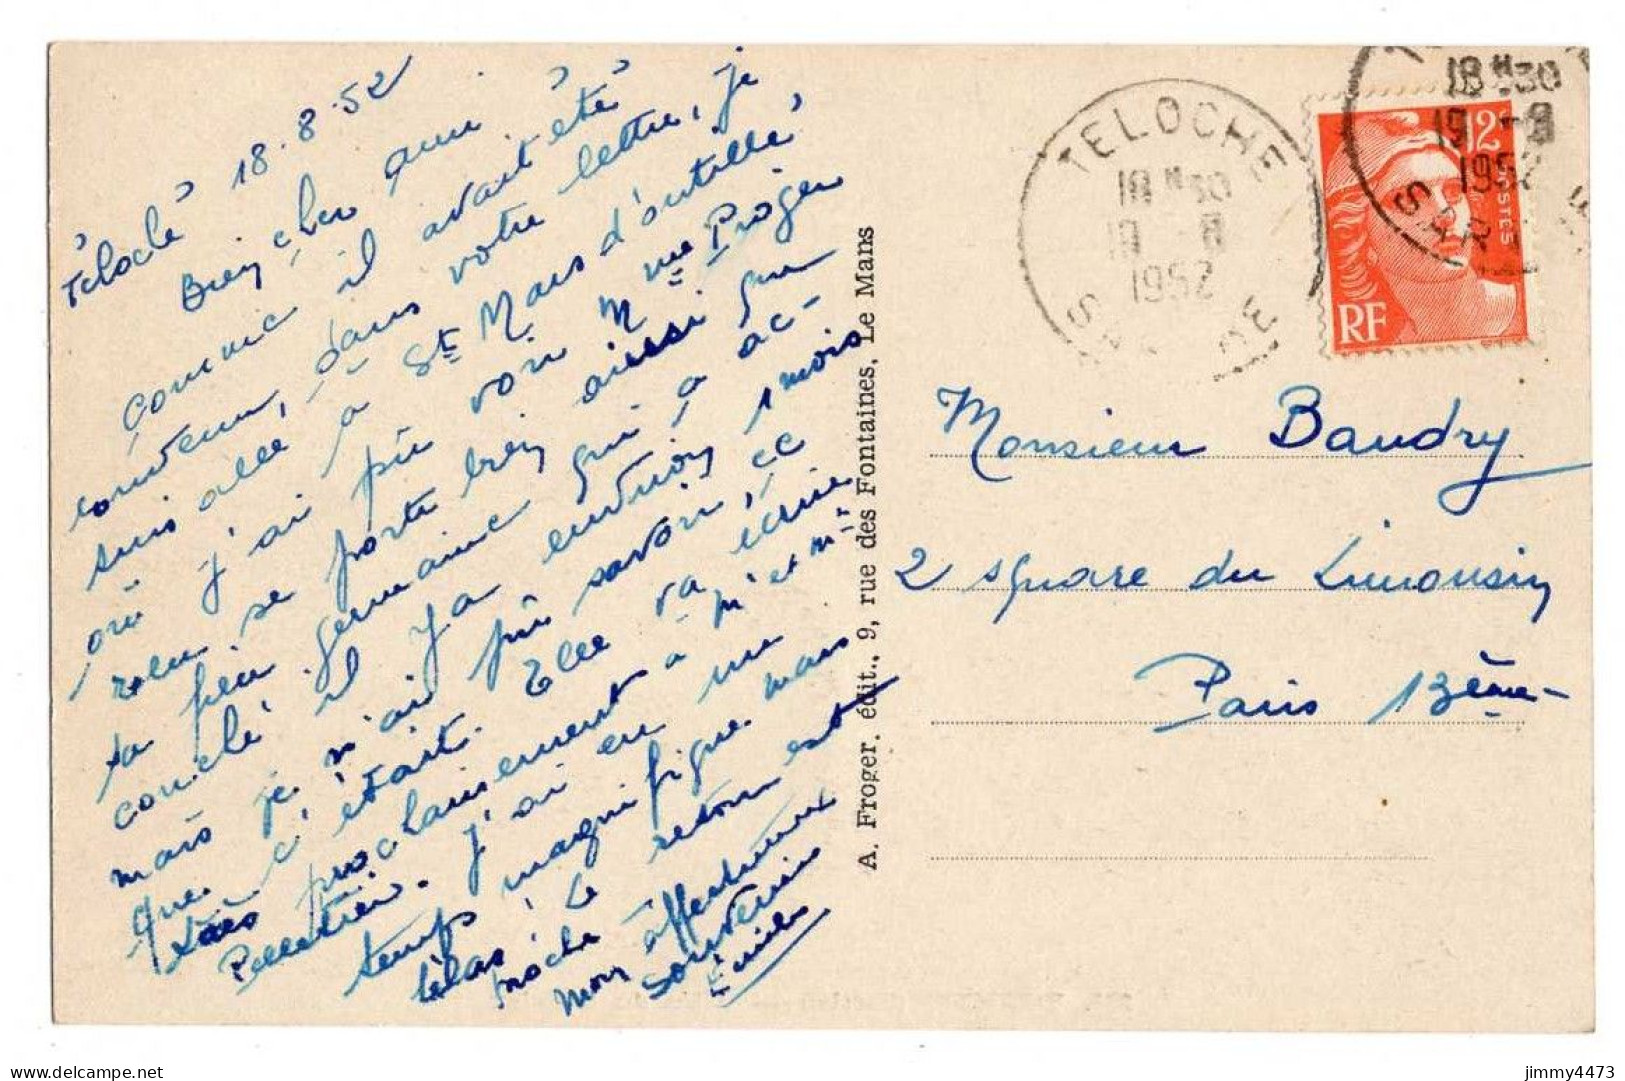 Téloché 18.8.52
Bien cher ami
comme il avait été
convenu, dans votre lettre, je
suis allé à St Mars d'outillé
où j'ai pû voir Mme Proger
se porte bien ainsi que
germaine qui a ac-
couché il y a environ 1 mois
mais je n'ai pû savoir ce
que c'était. Elle va écrire
très prochainement à Mr et Mme
Pelletier. J'ai eu un
temps magnifique mais
hélas! le retour est
proche
mon affectueux
souvenir
Emile
A. Froger. édit., 9, rue des Fontaines, Le Mans
TELOCHE
18 H 30
19 - 8
1952
SARTHE
12F
POSTES
RF
18 H 30
19 - 8
1952
SAR
Monsieur Baudry
2 square du Limousin
Paris 13ème
jimmy4473